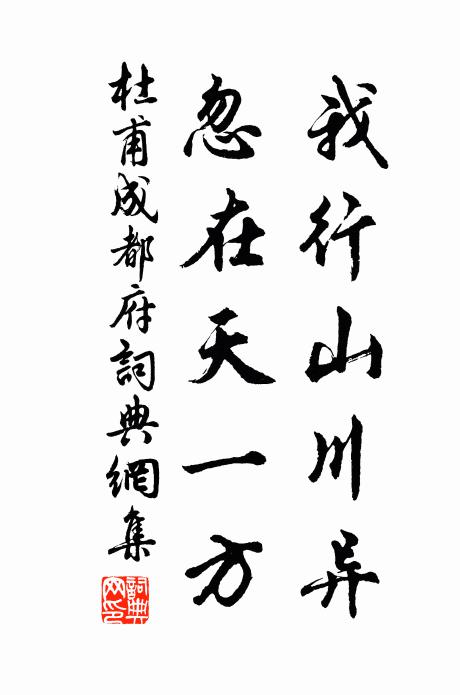 我行山川异
忽在天一方
杜甫成都府詞典網集
詞典网印